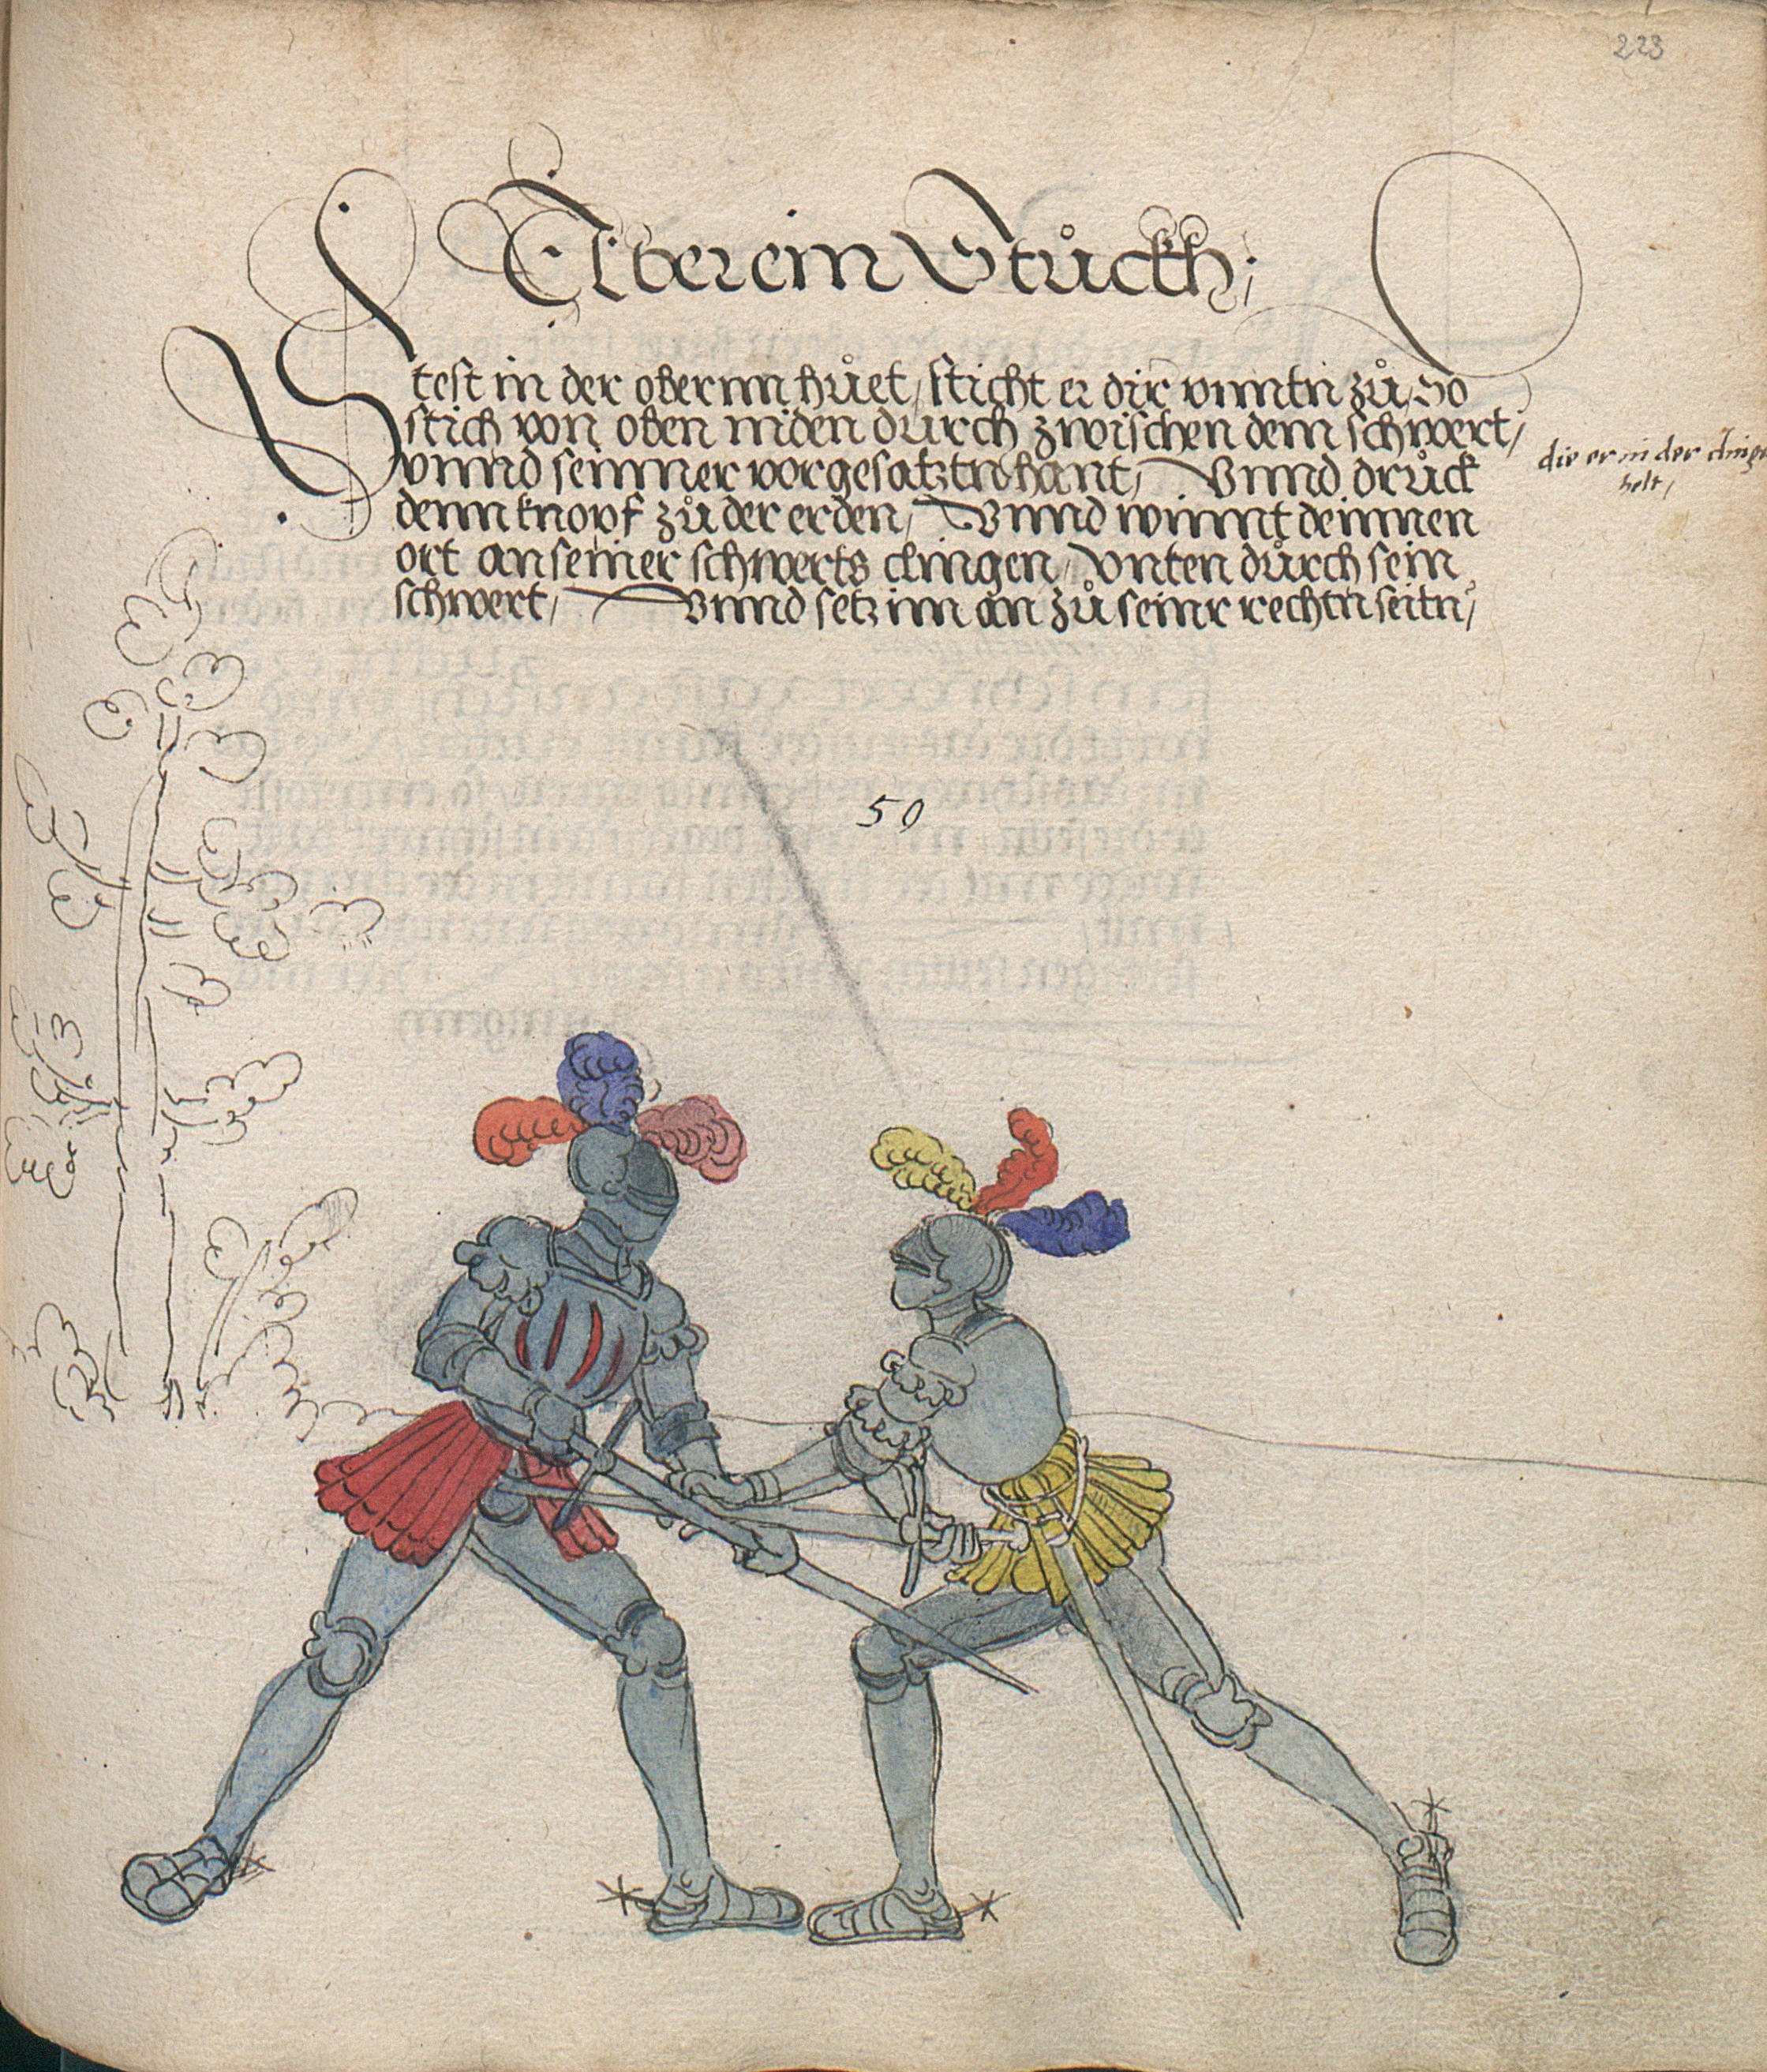 223
Aber ein Stůckh;
Stest in der obernn hůet, sticht er dir vnntn zů, So
stich von oben niden durch zwischen dem schwert,
vnnd seinner vorgesatztn hant, Vnnd drůck
denn knopf zů der erden, Vnnd winnt deinnen
ort an seiner schwerts clingen, vnten důrch sein
schwert, Vnnd setz im an zů seinr rechtn seitn,
die er in der clingen
helt,
50